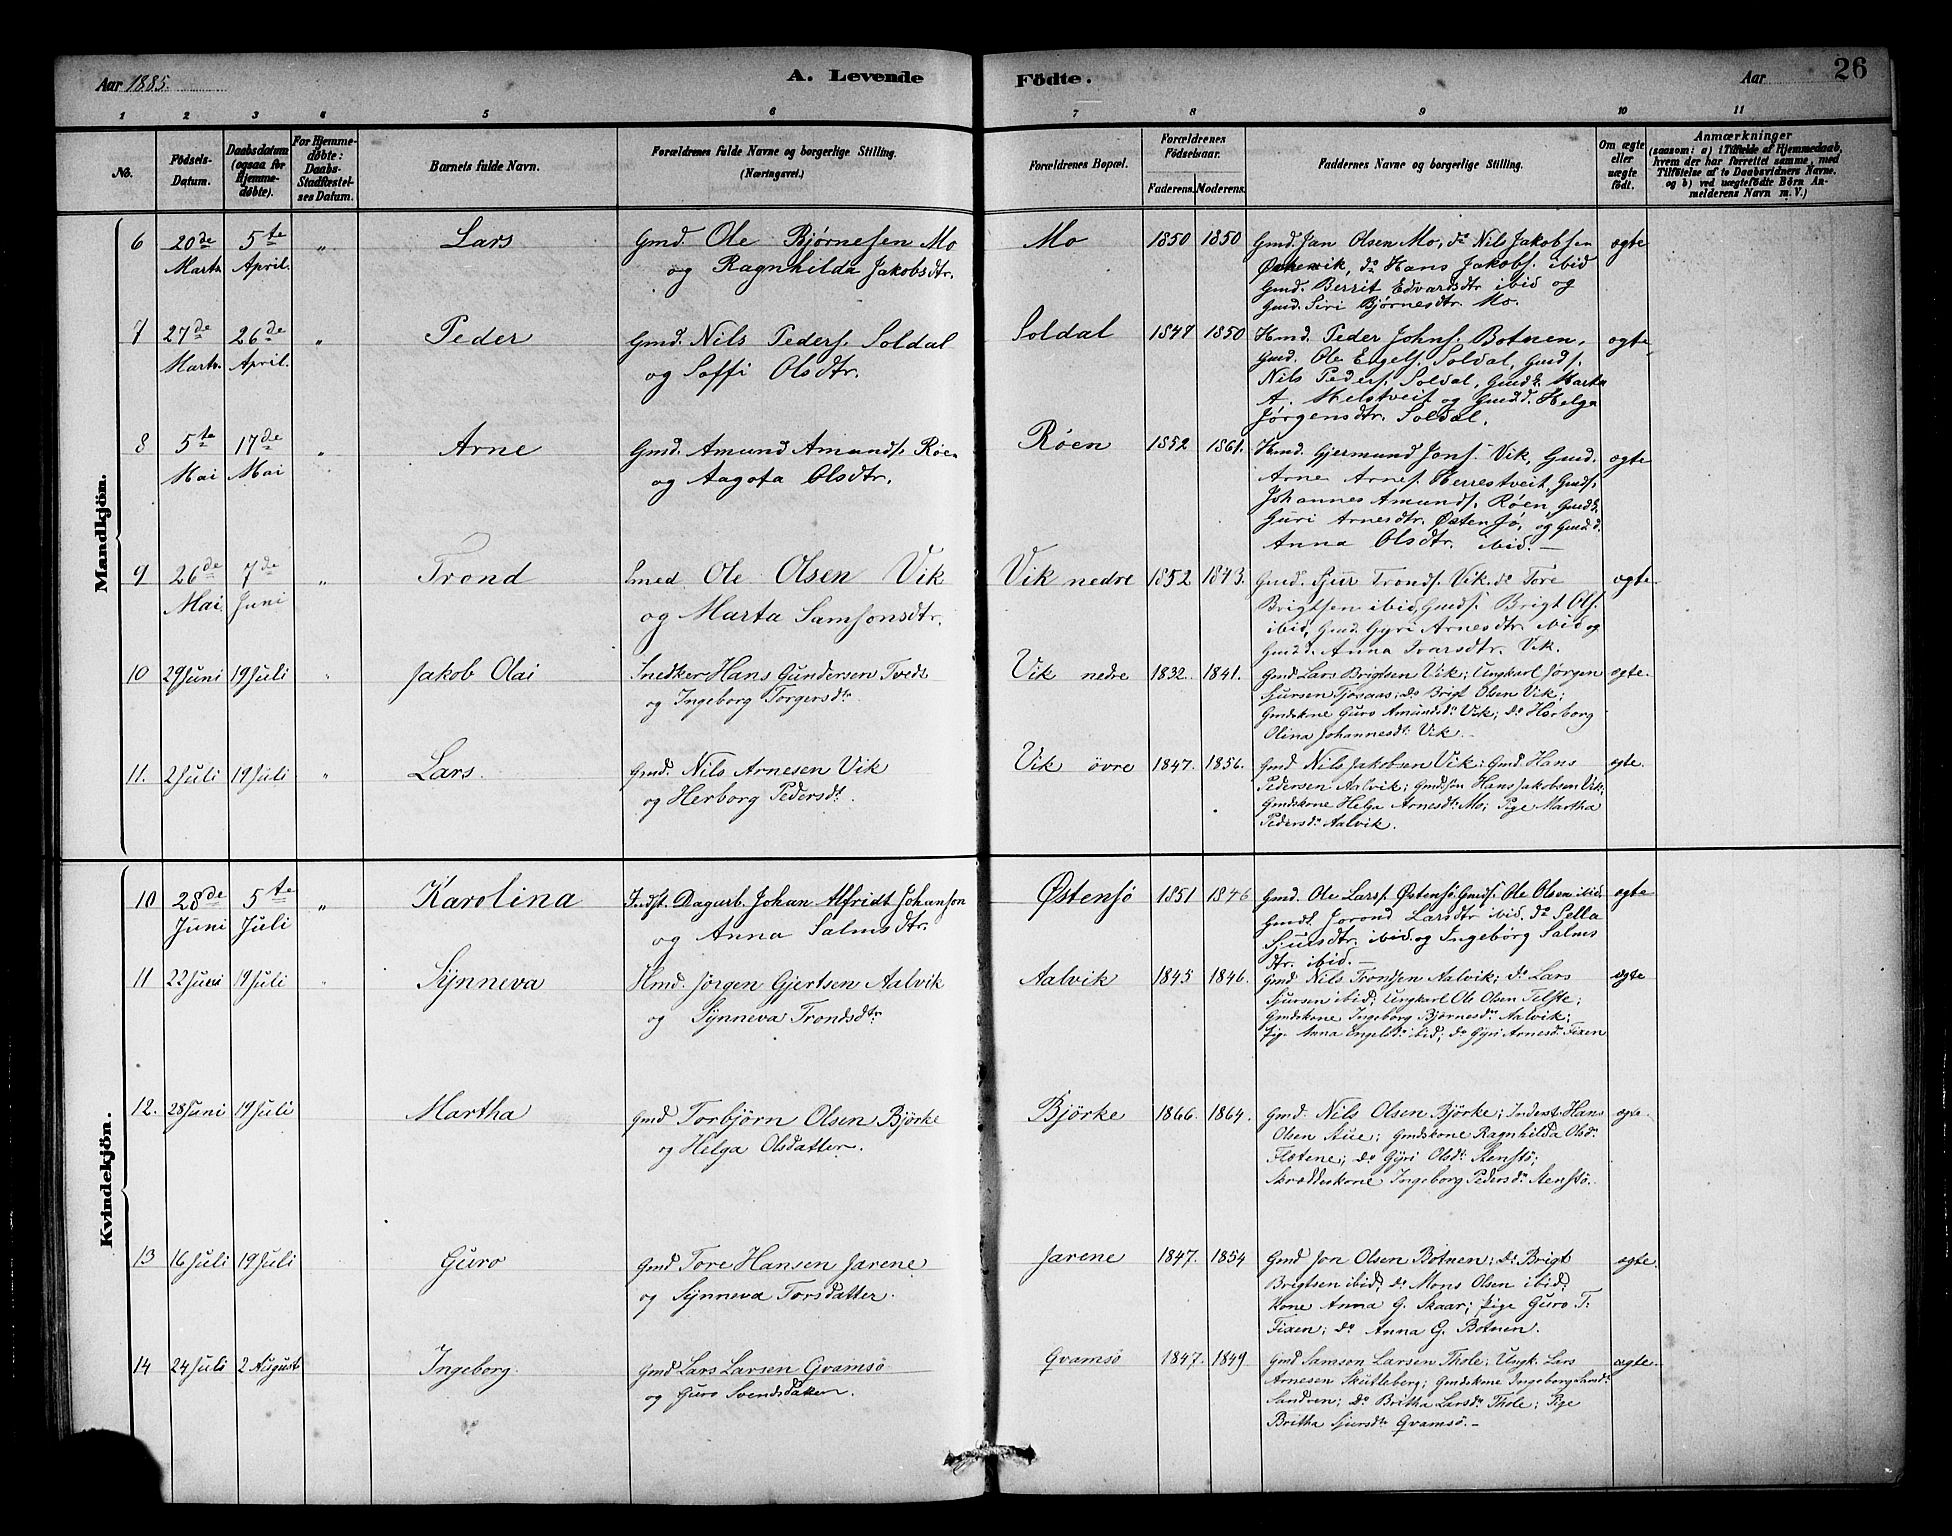 Aar 1885.
A. Levende Födte.
Aar
26
1 2 3 4 5 6 7 8 9 10 11
No.
Födsels-
Datum.
Daabsdatum
(ogsaa for
Hjemme-
døbte).
For Hjemme-
døbte:
Daabs-
Stadfæstel-
ses Datum.
Barnets fulde Navn.
Forældrenes fulde Navne og borgerlige Stilling.
(Næringsvei.)
Forældrenes Bopæl.
Forældrenes
Födselsaar.
Faderens. Moderens.
Faddernes Navne og borgerlige Stilling.
Om ægte
eller
uægte
födt.
Anmærkninger
(saasom: a) i Tilfælde af Hjemmedaab,
hvem der har forrettet samme, med
Tilföielse af to Daabsvidners Navne,
og b) ved uægtefödte Börn An-
melderens Navn m. V.)
Mandkjön.
6 20de Marts 5te April. " Lars
Gmd. Ole Bjørnesen Mo
og Ragnhilda Jakobsdtr.
Mo 1850 1850
Gmd. Jan Olsen Mo, do Nils Jakobsen
vik, do Hans Jakobs. ibid
Gmd. Berrit Edvardsdtr ibid og
Gmd. Siri Bjørnesdtr. Mo.
ægte
7 27de Marts. 26de April. " Peder
Gmd. Nils Peders. Soldal
og Soffi Olsdtr.
Soldal 1847 1850
Hmd. Peder Johns. Botnen,
Gmd. Ole Engels. Soldal, Gmds.
Nils Peders. Soldal, Gmdk. Marta
A. Melstveit og Gmd.d. Helga
Jørgensdtr. Soldal.
ægte
8 5te Mai 17de Mai " Arne
Gmd. Amund Amunds. Røen
og Aagota Olsdtr.
Røen 1852 1861.
Hmd. Gjermund Jons. Vik, Gmd.
Arne Arnes. Herrestveit, Gmds.
Johannes Amunds. Røen, Gmdk.
Guri Arnesdtr. Østensø, og Gmd.d.
Anna Olsdtr. ibid.—
ægte
9 26de Mai. 7de Juni " Trond
Smed Ole Olsen Vik
og Marta Samsonsdtr.
Vik nedre 1852 1843.
Gmd. Sjur Tronds. Vik. do Tore
Brigtsen ibid, Gmds. Brigt Ols.
ibid, Gmd. Gyri Arnesdtr. ibid og
Gmdd. Anna Ivarsdtr. Vik.
ægte
10 29 Juni 19 Juli " Jakob Olai
Snedker Hans Gundersen Tvedt
og Ingeborg Torgersdtr
Vik nedre 1832. 1841.
Gmd Lars Brigtsen Vik; Ungkarl Jørgen
Sjursen Tjosaas; do Brigt Olsen Vik;
Gmdskone Guro Amundsdr Vik; do Herborg
Olina Johannesdr Vik.
ægte.
11. 2 Juli 19 Juli " Lars.
Gmd. Nils Arnesen Vik
og Herborg Pedersdr.
Vik övre 1847. 1856.
Gmd Nils Jakobsen Vik; Gmd. Hans
Pedersen Aalvik; Gmdsön Hans Jakobsen Vik;
Gmdskone Helga Arnesdr Mo; Pige Martha
Pedersdr Aalvik.
ægte.
Kvindekjön.
10 28de Juni 5te Juli " Karolina
Indst. Dagarb. Johan Alfridt Johanson
og Anna Salmsdtr.
Østensø 1851 1846
Gmd. Ole Larss. Østensø, Gmds. Ole Olsen ibid.
Gmdk. Jorond Larsdtr ibid. do Sella
Sjursdtr. ibid. og Ingeborg Salms
dtr. ibid.—
ægte
11 22 Juni 19 Juli " Synneva
Hmd. Jörgen Gjertsen Aalvik
og Synneva Trondsdtr
Aalvik 1845 1846.
Gmd Nils Trondsen Aalvik; do Lars
Sjursen ibid; Ungkarl Ole Olsen Telste;
Gmdskone Ingeborg Björnesdr Aalvik;
Pig. Anna Engelsdr ibid; do Gyri Arnesd. Fixen
ægte
12. 28 Juni 19 Juli Martha
Gmd Torbjörn Olsen Björke
og Helga Olsdatter.
Björke 1866. 1864.
Gmd. Nils Olsen Björke; Inderst Hans
Olsen Aue; Gmdskone Ragnhilda Olsdr
Flætene; do Gyri Olsdr Stensö;
Skrædderkone Ingeborg Pedersdr Stensö.
ægte.
13 16 Juli 19 Juli Guro
Gmd Tore Hansen Jarene
og Synneva Torsdatter.
Jarene 1847. 1854
Gmd Jon Olsen Botnen; do Brigt
Brigtsen ibid; do Mons Olsen ibid;
Kone Anna G. Skaar; Pige Guro T.
Fixen; do Anna G. Botnen.
ægte.
14 24 Juli 2 August Ingeborg.
Gmd Lars Larsen Qvamsö
og Guro Svendsdatter.
Qvamsö 1847. 1849
Gmd Samson Larsen Thole; Ungk. Lars
Arnesen Skutleberg; Gmdskone Ingeborg
Sandven; do Britha Larsdr Thole; Pige
Britha Sjursdr Qvamsö.—
ægte.